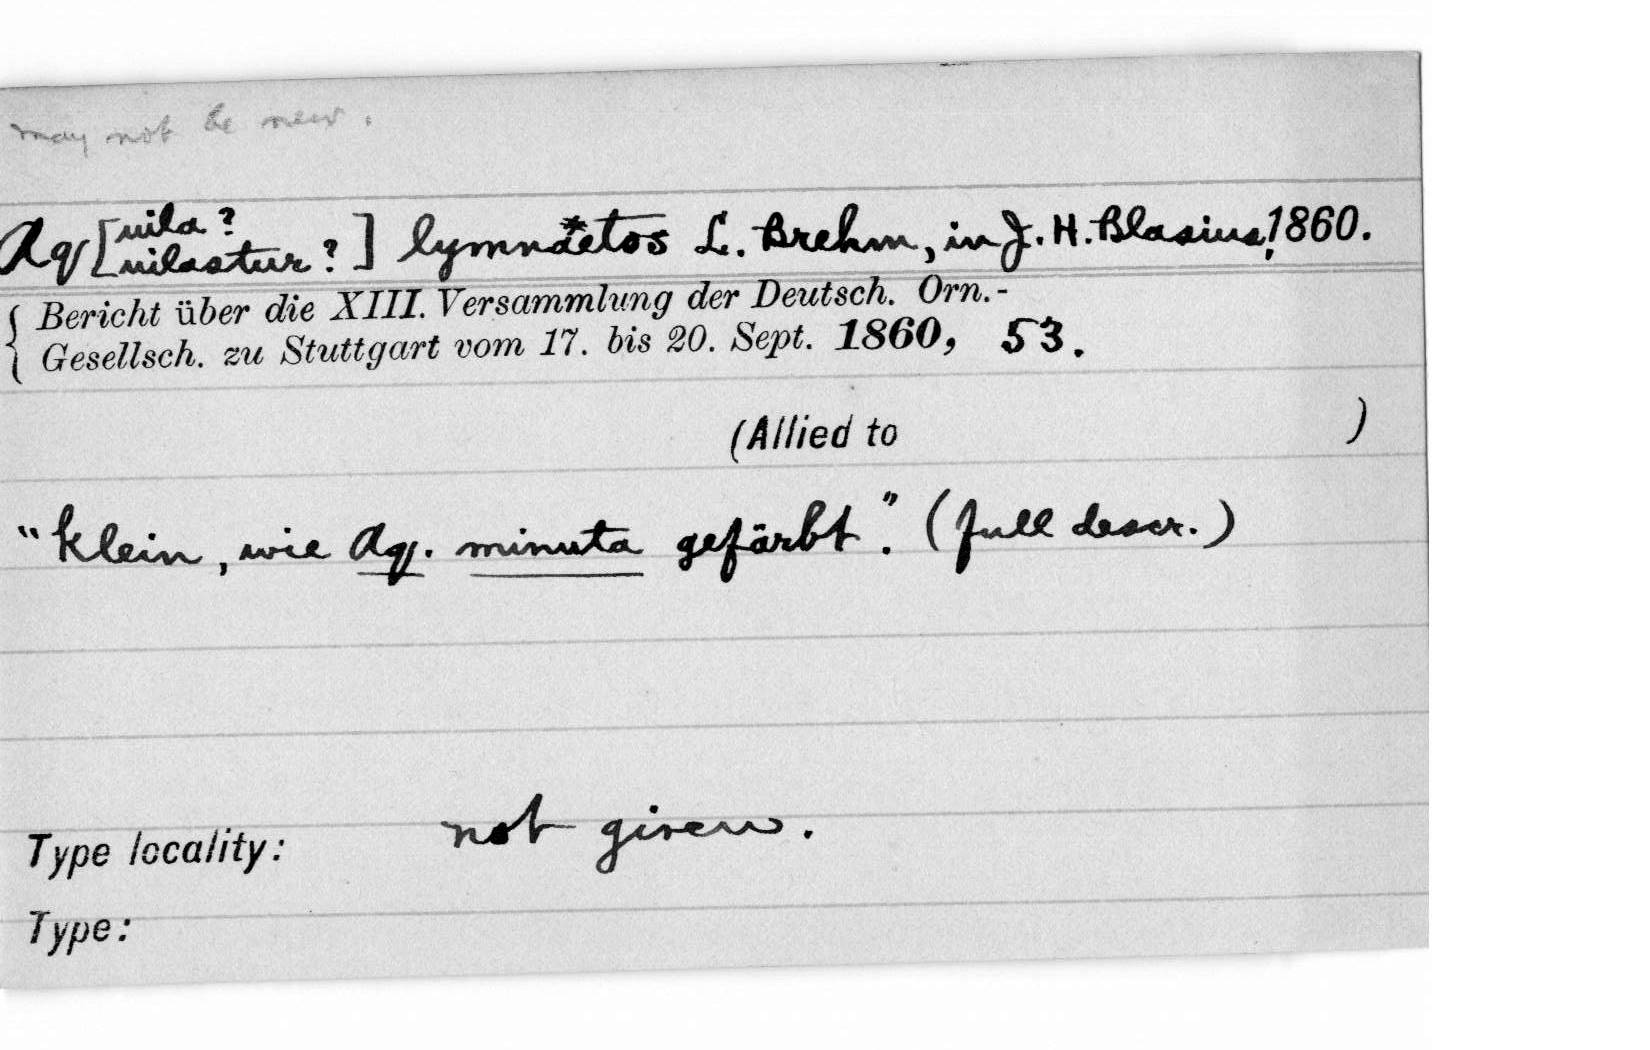 may not be new.
Aq[uila ?
uilastur ?] lymnäetos L. Brehm, in J. H. Blasius, 1860.
{ Bericht über die XIII. Versammlung der Deutsch. Orn.-
Gesellsch. zu Stuttgart vom 17. bis 20. Sept. 1860, 53.
(Allied to )
"klein, wie Aq. minuta gefärbt". (full descr.)
Type locality: not given.
Type: